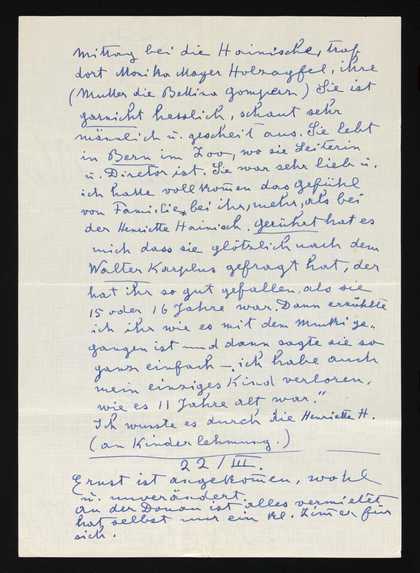 mittag bei die Hainische, traf
dort Monika Mayer Holzapfel, ihre
(Mutter die Bettina Gomperz) Sie ist
garnicht hesslich, schaut sehr
männlich u. gescheit aus. Sie lebt
in Bern im Zoo, wo sie Leiterin
u. Director ist. Sie war sehr lieb u.
ich hatte vollkom̅en das gefühl
von Familie, bei ihr, mehr, als bei
der Henriette Hainisch. gerühret hat es
mich dass sie plötzlich nach dem
Walter Karplus gefragt hat, der
hat ihr so gut gefallen, als sie
15 oder 16 Jahre war. Dann erzählte
ich ihr wie es mit dem Mukki ge-
gangen ist – und dann sagte sie so
ganz einfach –. ich habe auch
mein einziges Kind verloren,
wie es 11 Jahre alt war."
Ich wusste es durch die Henriette H.
(an Kinderlehmung.)
22/III.
Ernst ist angekom̅en, wohl
u. unverändert.
an der Donau ist alles vermietet
hat selbst nur ein kl. Zimer für
sich.